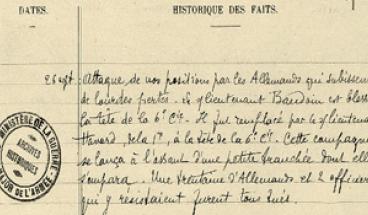 DATES.
HISTORIQUE DES FAITS.
26 sept : Attaque de nos positions par les Allemands qui subissent
de lourdes pertes. Le s/lieutenant Baudoin est blessé
à la tête de la 6e Cie. Il fut remplacé par le s/lieutenant
Havard, de la 1e, à la tête de la 6e Cie. Cette compagnie
se lança à l'assaut d'une petite tranchée dont elle
s'empara. Une trentaine d'Allemands et 2 officiers
qui y résistaient furent tous tués.
MINISTÈRE DE LA GUERRE
ARCHIVES
HISTORIQUES